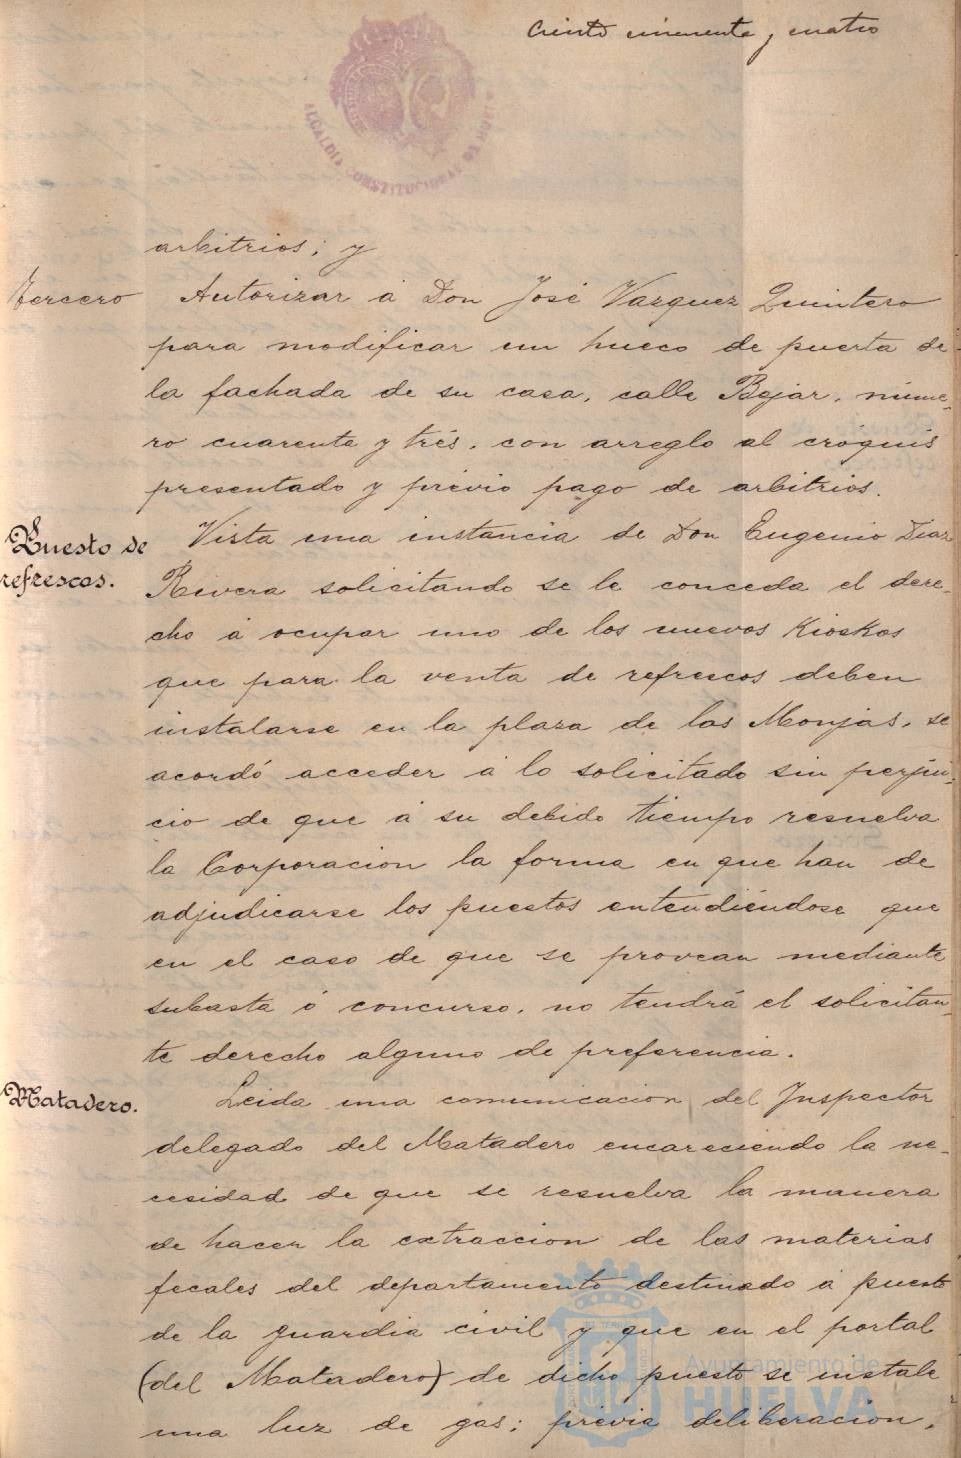 Ciento cincuenta y cuatro
ALCALDIA CONSTITUCIONAL DE HUELVA
arbitrios; y
Tercero Autorizar á Don José Vazquez Quintero
para modificar un hueco de puerta de
la fachada de su casa, calle Bejar, núme-
ro cuarenta y trés, con arreglo al cróquis
presentado y prévio pago de arbitrios.
Puesto de refrescos.
Vista una instancia de Don Eugenio Diaz
Rivera solicitando se le conceda el dere-
cho á ocupar uno de los nuevos Kioskos
que para la venta de refrescos deben
instalarse en la plaza de las Monjas, se
acordó acceder á lo solicitado sin perjui-
cio de que á su debido tiempo resuelva
la Corporacion la forma en que han de
adjudicarse los puestos entendiéndose que
en el caso de que se provean mediante
subasta ó concurso, no tendrá el solicitan-
te derecho alguno de preferencia.
Matadero. Leida una comunicacion del Inspector
delegado del Matadero encareciendo la ne-
cesidad de que se resuelva la manera
de hacer la extraccion de las materias
fecales del departamento destinado á puesto
de la guardia civil y que en el portal
(del Matadero) de dicho puesto se instale
una luz de gas; prévia deliberacion,
Ayuntamiento de
HUELVA